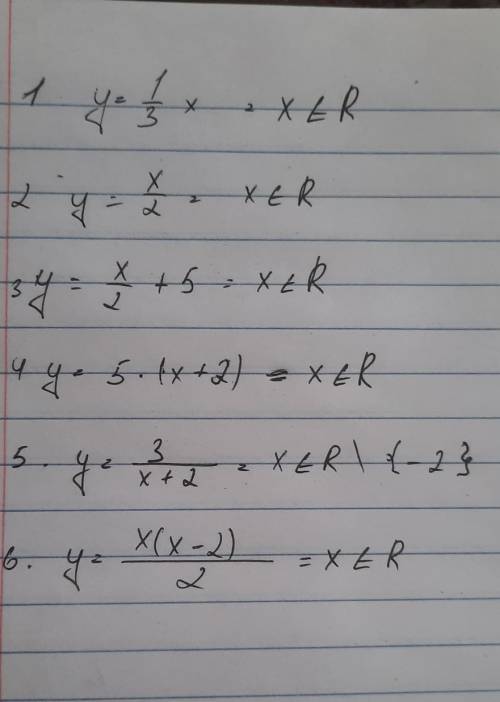 1 y = 1/3 x = x ∈ R
2 y = x/2 = x ∈ R
3 y = x/2 + 5 = x ∈ R
4 y = 5 · (x + 2) = x ∈ R
5. y = 3/(x + 2) = x ∈ R \ {-2}
6. y = x(x - 2)/2 = x ∈ R